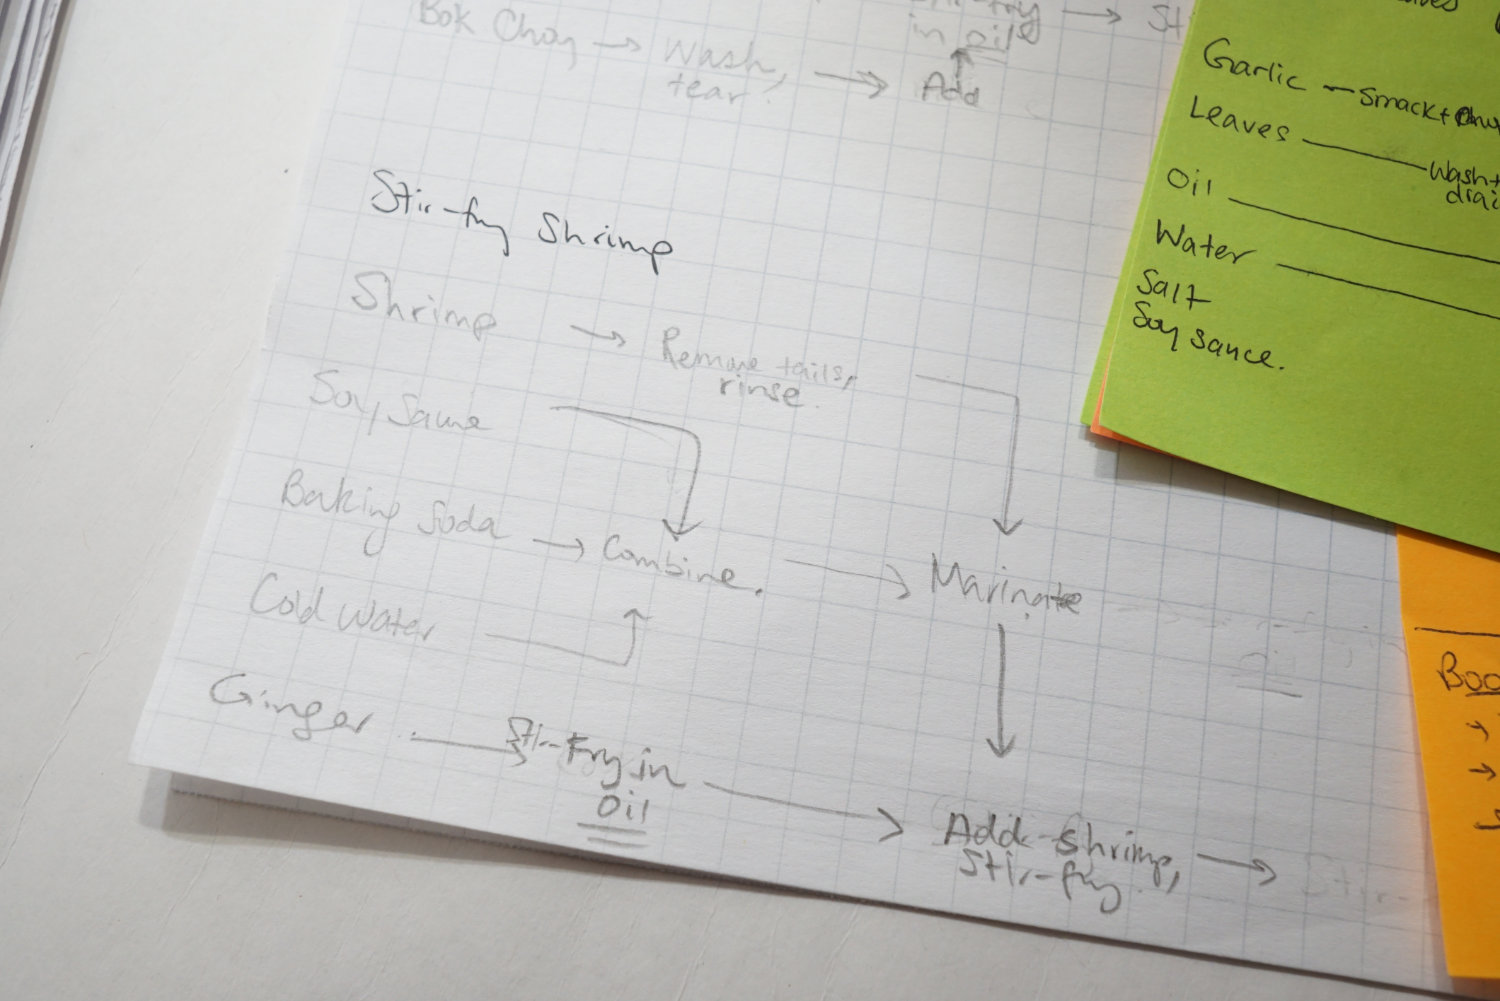 Bok Choy → Wash,
tear.
in oil
Add
Stir-fry Shrimp
Shrimp → Remove tails,
rinse.
Soy Sauce
Baking Soda → Combine. → Marinate
Cold Water
Ginger → Stir-Fry in
Oil
→ Add shrimp,
Stir-fry →
Garlic — Smack +
Leaves — Wash +
Oil
Water
Salt
Soy sauce.